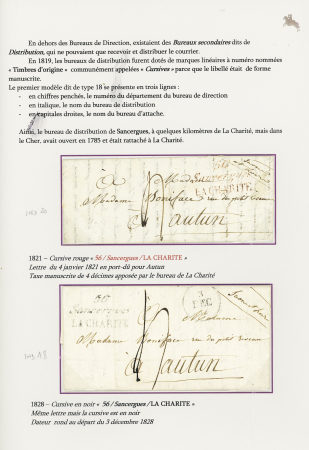 En dehors des Bureaux de Direction, existaient des Bureaux secondaires dits de
Distribution, qui ne pouvaient que recevoir et distribuer le courrier.
En 1819, les bureaux de distribution furent dotés de marques linéaires à numéro nommées
« Timbres d'origine » communément appelées « Cursives » parce que le libellé était de forme
manuscrite.
Le premier modèle dit de type 18 se présente en trois lignes :
- en chiffres penchés, le numéro du département du bureau de direction
- en italique, le nom du bureau de distribution
- en capitales droites, le nom du bureau d'attache.
Ainsi, le bureau de distribution de Sancergues, à quelques kilomètres de La Charité, mais dans
le Cher, avait ouvert en 1785 et était rattaché à La Charité.
Sancergues
LA CHARITE
Madame
Madame Boniface rue du petit
autun
1821 – Cursive rouge « 56/Sancergues/LA CHARITE »
Lettre du 4 janvier 1821 en port-dû pour Autun
Taxe manuscrite de 4 décimes apposée par le bureau de La Charité
Sancergues
LA CHARITE
3
DEC
Madame
Madame Boniface rue du petit
autun
1828 – Cursive en noir « 56/Sancergues/LA CHARITE »
Même lettre mais la cursive est en noir
Dateur rond au départ du 3 décembre 1828